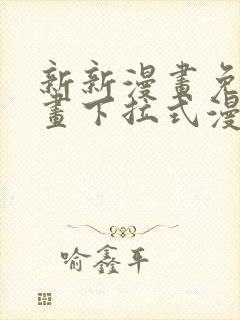 新新漫畫免
畫下拉式漫
喻鑫平